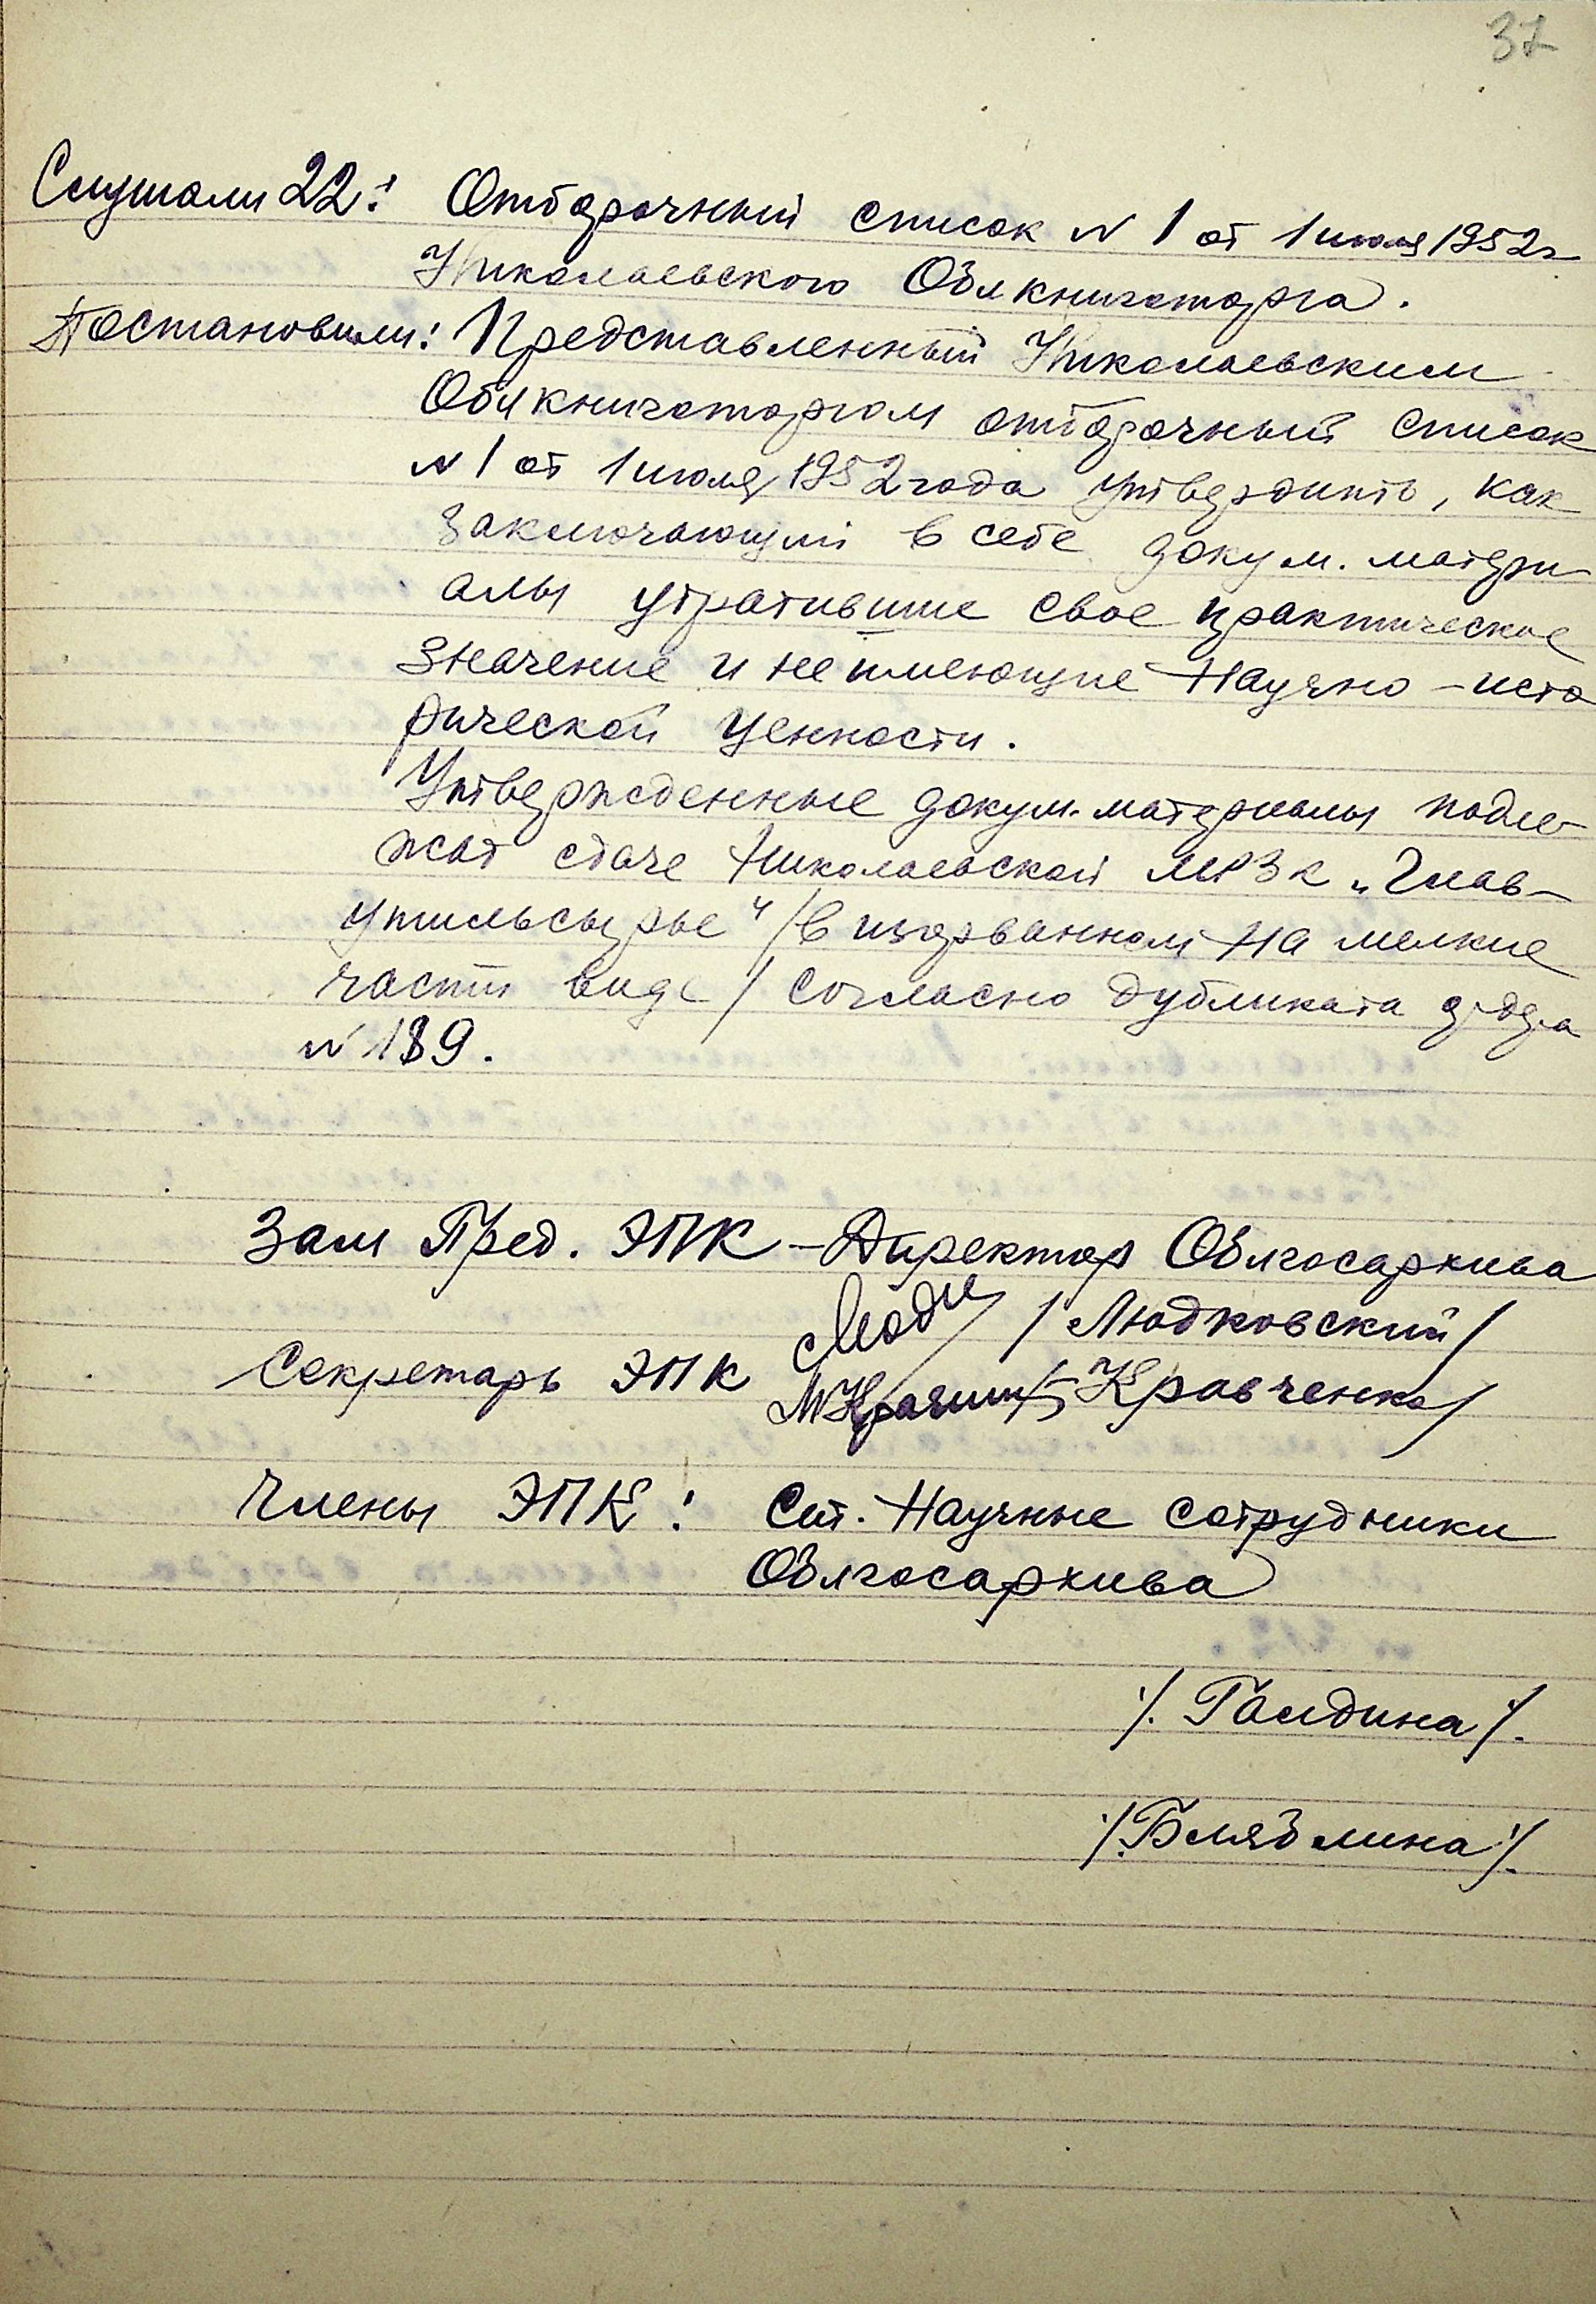 37
Слушали 22: Отборочный список N 1 от 1 июля 1952 г
Николаевского Облкниготорга.
Постановили: Представленный Николаевским
Облкниготоргом отборочный список
N 1 от 1 июля 1952 года утвердить, как
заключающий в себе докум. матери
алы утратившие свое практическое
значение и не имеющие научно-исто
рической ценности.
Утвержденные докум. материалы подле-
жат сдаче Николаевской МРЗК „Глав-
утильсырье" /в изорванном на мелкие
части виде/ согласно дубликата
N 189.
Зам Пред. ЭПК - Директор Облгосархива
/Людковский/
Секретарь ЭПК /Кравченко/
Члены ЭПК: Ст. Научные сотрудники
Облгосархива
/. Галдина /.
/. Бляблина /.